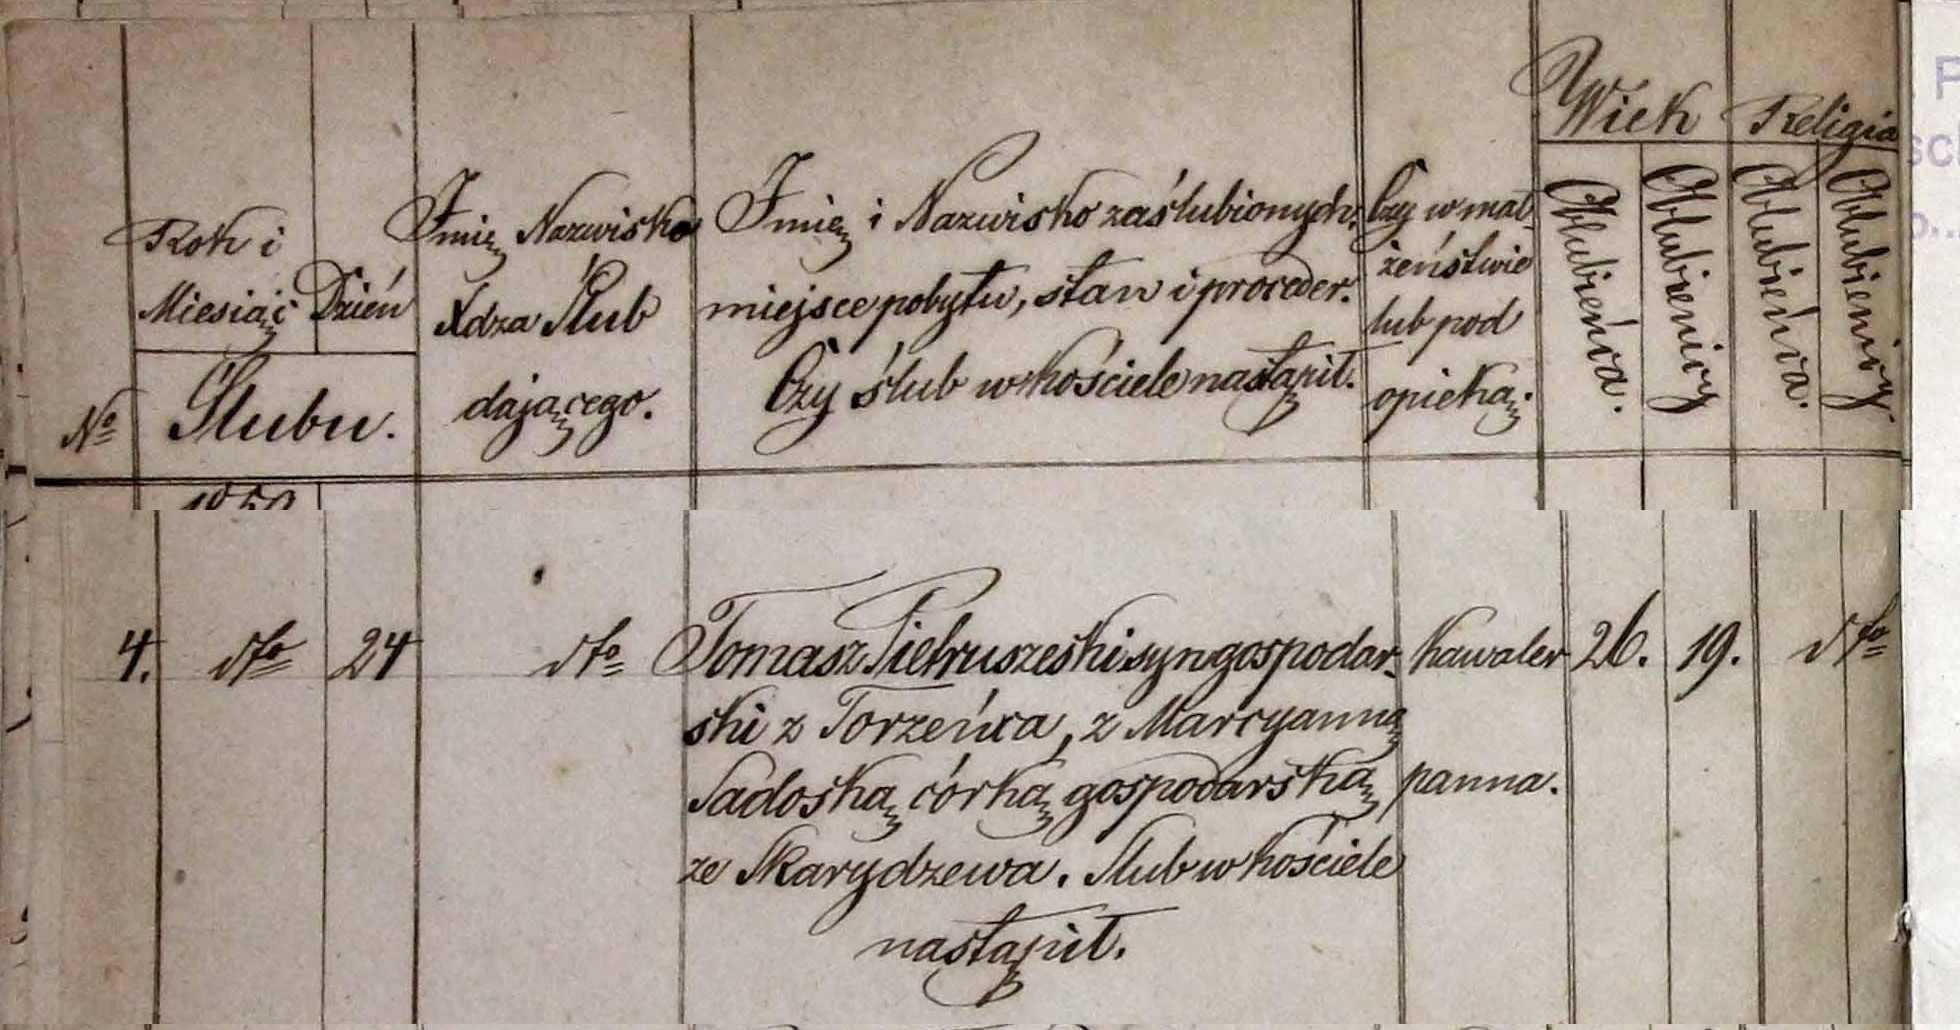 Wiek Religia
Rok i
Miesiąc Dzień
Ślubu.
№
Imię Nazwisko
Xdza Ślub
dającego.
Imię i Nazwisko zaślubionych,
miejsce pobytu, stan i proceder.
Czy ślub w kościele nastąpił.
Czy w mał-
żeństwie
lub pod
opieką.
Oblubieńca.
Oblubienicy
Oblubieńca.
Oblubienicy.
4. dto 24 dto Tomasz Pietruszeski syn gospodar- kawaler 26. 19. dto
ski z Torzeńca, z Marcyanną
Sadoską córką gospodarską panna.
ze Skarydzewa. Slub w kościele
nastąpił.